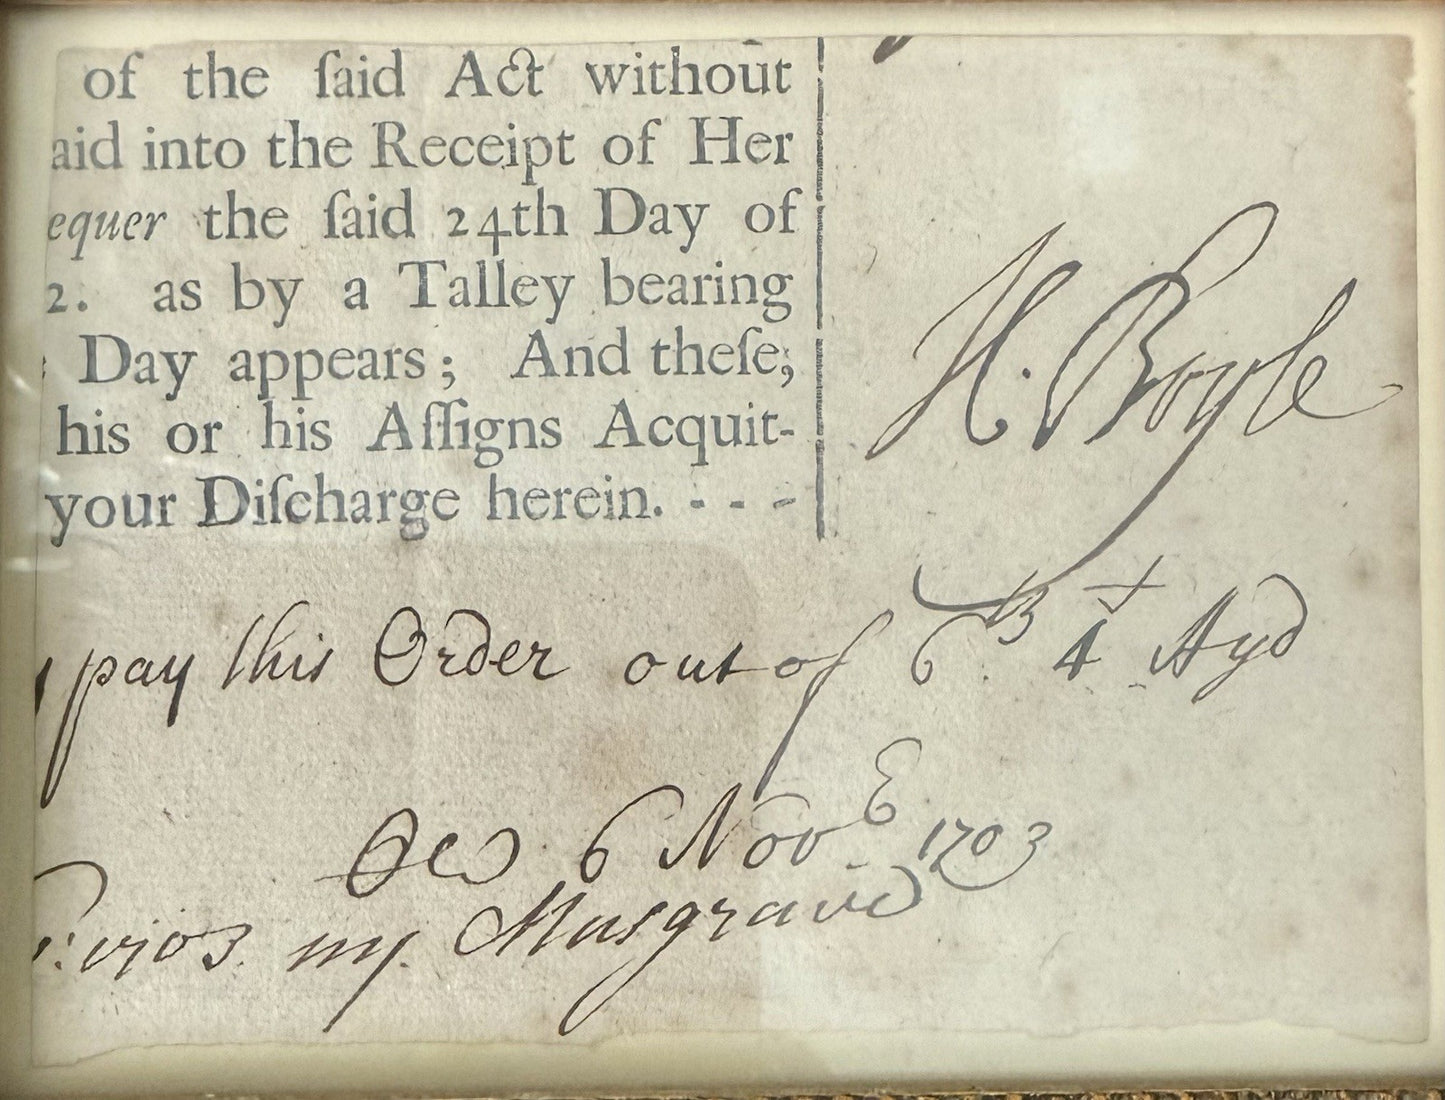 of the ſaid Act without
aid into the Receipt of Her
equer the ſaid 24th Day of
2. as by a Talley bearing
Day appears; And theſe,
his or his Aſſigns Acquit-
your Diſcharge herein. - - -
H. Boyle
pay this Order out of 6 4 Ayd
6 Nov 1703
Musgrave